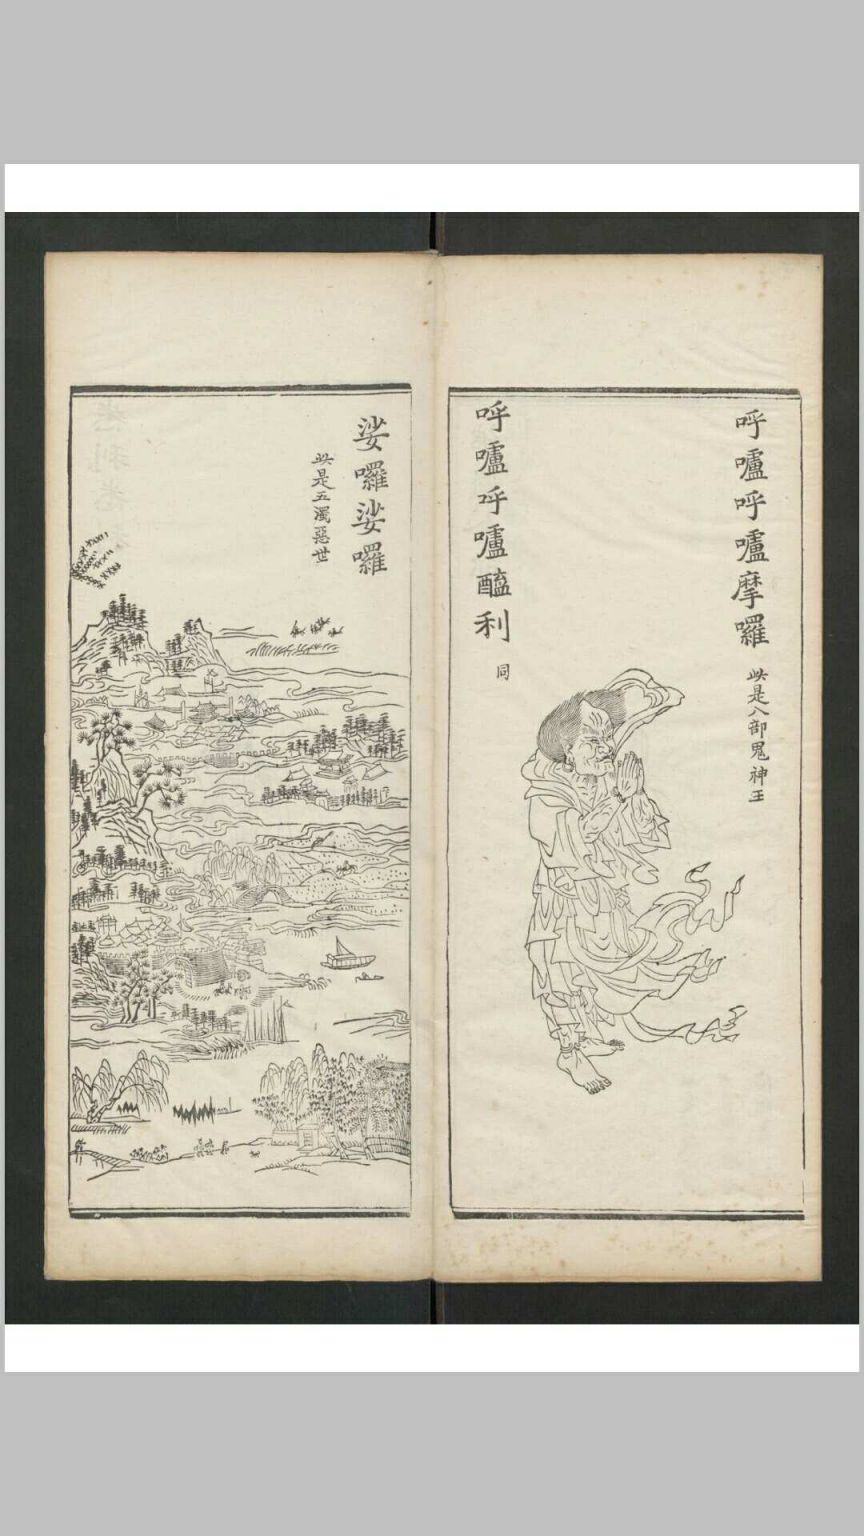 呼嚧呼嚧摩囉
此是八部鬼神王
呼嚧呼嚧醯利
同
娑囉娑囉
此是五濁惡世